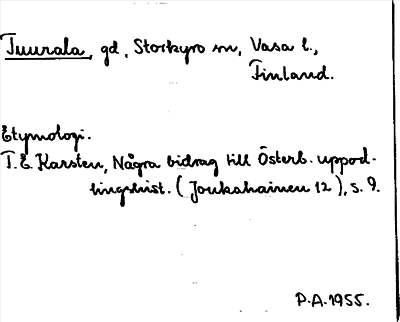 Tuurala, gd, Storkyro sn, Vasa l.,
Finland.
Etymologi.
T.E. Karsten, Några bidrag till Österb. uppod-
lingshist. (Joukahainen 12), s. 9.
P.A. 1955.